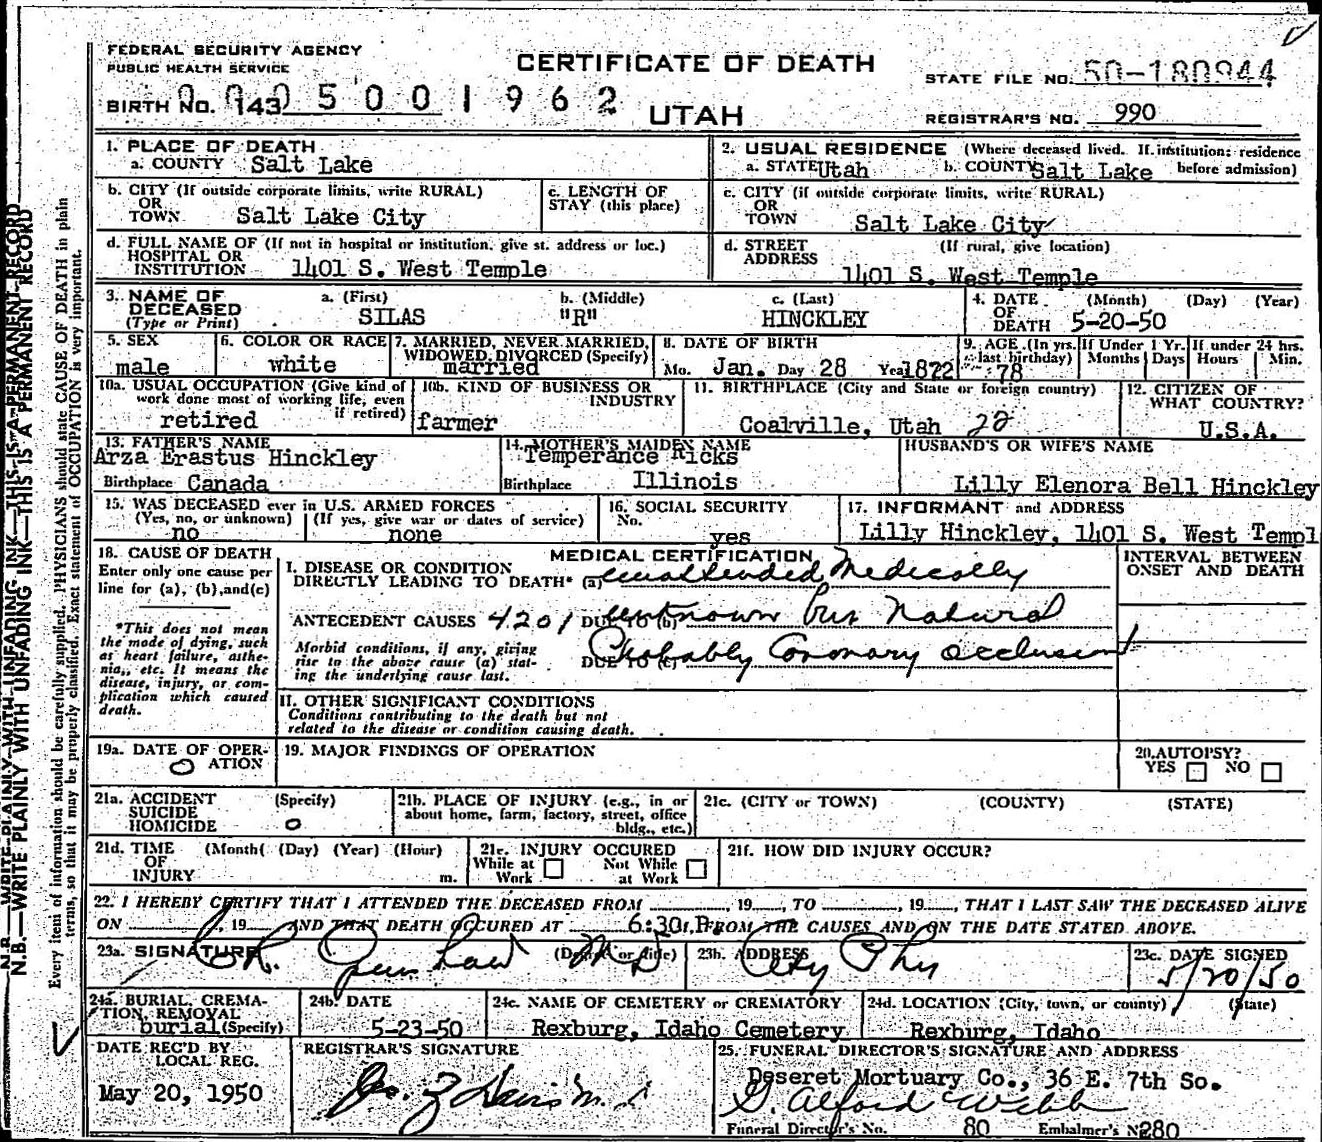 FEDERAL SECURITY AGENCY
PUBLIC HEALTH SERVICE
CERTIFICATE OF DEATH
STATE FILE NO. 50-180944
BIRTH NO. 143 0 0 0 5 0 0 1 9 6 2
UTAH
REGISTRAR'S NO. 990
1. PLACE OF DEATH
a. COUNTY Salt Lake
2. USUAL RESIDENCE (Where deceased lived. If institution: residence before admission)
a. STATE Utah b. COUNTY Salt Lake
b. CITY (If outside corporate limits, write RURAL)
OR
TOWN Salt Lake City
c. LENGTH OF
STAY (this place)
c. CITY (if outside corporate limits, write RURAL)
OR
TOWN Salt Lake City
d. FULL NAME OF (If not in hospital or institution, give st. address or loc.)
HOSPITAL OR
INSTITUTION 1401 S. West Temple
d. STREET (If rural, give location)
ADDRESS
1401 S. West Temple
3. NAME OF DECEASED
(Type or Print)
a. (First) b. (Middle) c. (Last)
SILAS "R" HINCKLEY
4. DATE (Month) (Day) (Year)
OF
DEATH 5-20-50
5. SEX
male
6. COLOR OR RACE
white
7. MARRIED, NEVER MARRIED,
WIDOWED, DIVORCED (Specify)
married
8. DATE OF BIRTH
Mo. Jan. Day 28 Year 1872
9. AGE (In yrs. last birthday) 78
If Under 1 Yr. Months Days
If under 24 hrs. Hours Min.
10a. USUAL OCCUPATION (Give kind of
work done most of working life, even
if retired)
retired
10b. KIND OF BUSINESS OR
INDUSTRY
farmer
11. BIRTHPLACE (City and State or foreign country)
Coalville, Utah 22
12. CITIZEN OF
WHAT COUNTRY?
U.S.A.
13. FATHER'S NAME
Arza Erastus Hinckley
Birthplace Canada
14. MOTHER'S MAIDEN NAME
Temperance Ricks
Birthplace Illinois
HUSBAND'S OR WIFE'S NAME
Lilly Elenora Bell Hinckley
15. WAS DECEASED ever in U.S. ARMED FORCES
(Yes, no, or unknown) (If yes, give war or dates of service)
no none
16. SOCIAL SECURITY
No. yes
17. INFORMANT and ADDRESS
Lilly Hinckley, 1401 S. West Templ
18. CAUSE OF DEATH
Enter only one cause per
line for (a), (b), and (c)
*This does not mean
the mode of dying, such
as heart failure, asthe-
nia, etc. It means the
disease, injury, or com-
plication which caused
death.
MEDICAL CERTIFICATION
I. DISEASE OR CONDITION
DIRECTLY LEADING TO DEATH* (a) unattended Medically
ANTECEDENT CAUSES 4201 DUE TO (b) unknown but Natural
Morbid conditions, if any, giving
rise to the above cause (a) stat-
ing the underlying cause last.
DUE TO (c) Probably Coronary Occlusion
INTERVAL BETWEEN
ONSET AND DEATH
II. OTHER SIGNIFICANT CONDITIONS
Conditions contributing to the death but not
related to the disease or condition causing death.
19a. DATE OF OPER-
ATION
0
19. MAJOR FINDINGS OF OPERATION
20. AUTOPSY?
YES NO
21a. ACCIDENT (Specify)
SUICIDE
HOMICIDE 0
21b. PLACE OF INJURY (e.g., in or
about home, farm, factory, street, office
bldg., etc.)
21c. (CITY or TOWN) (COUNTY) (STATE)
21d. TIME (Month) (Day) (Year) (Hour)
OF
INJURY m.
21e. INJURY OCCURED
While at Work Not While at Work
21f. HOW DID INJURY OCCUR?
22. I HEREBY CERTIFY THAT I ATTENDED THE DECEASED FROM , 19 , TO , 19 , THAT I LAST SAW THE DECEASED ALIVE
ON , 19 AND THAT DEATH OCCURED AT 6:30 P. FROM THE CAUSES AND ON THE DATE STATED ABOVE.
23a. SIGNATURE (Degree or title) M D
23b. ADDRESS City
23c. DATE SIGNED
5/20/50
24a. BURIAL, CREMA-
TION, REMOVAL
burial (Specify)
24b. DATE
5-23-50
24c. NAME OF CEMETERY or CREMATORY
Rexburg, Idaho Cemetery
24d. LOCATION (City, town, or county) (State)
Rexburg, Idaho
DATE REC'D BY
LOCAL REG.
May 20, 1950
REGISTRAR'S SIGNATURE
25. FUNERAL DIRECTOR'S SIGNATURE AND ADDRESS
Deseret Mortuary Co., 36 E. 7th So.
G. Alford Webb
Funeral Director's No. 80 Embalmer's No. 280
N.B.—WRITE PLAINLY WITH UNFADING INK—THIS IS A PERMANENT RECORD
Every item of information should be carefully supplied. PHYSICIANS should state CAUSE OF DEATH in plain
terms, so that it may be properly classified. Exact statement of OCCUPATION is very important.